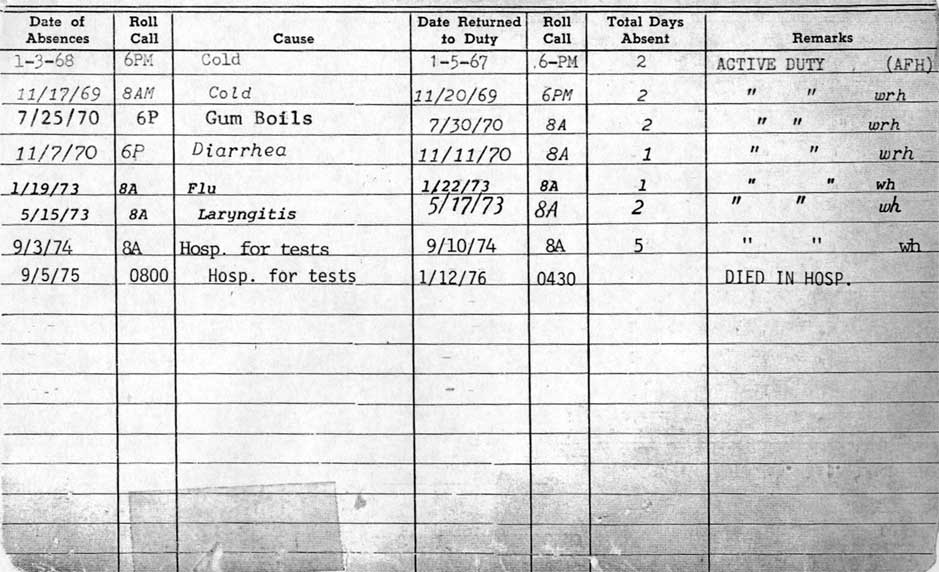 Date of Absences Roll Call Cause Date Returned to Duty Roll Call Total Days Absent Remarks
1-3-68 6PM Cold 1-5-67 6-PM 2 ACTIVE DUTY (AFH)
11/17/69 8AM Cold 11/20/69 6PM 2 " " wrh
7/25/70 6P Gum Boils 7/30/70 8A 2 " " wrh
11/7/70 6P Diarrhea 11/11/70 8A 1 " " wrh
1/19/73 8A Flu 1/22/73 8A 1 " " wh
5/15/73 8A Laryngitis 5/17/73 8A 2 " " wh
9/3/74 8A Hosp. for tests 9/10/74 8A 5 " " wh
9/5/75 0800 Hosp. for tests 1/12/76 0430 DIED IN HOSP.